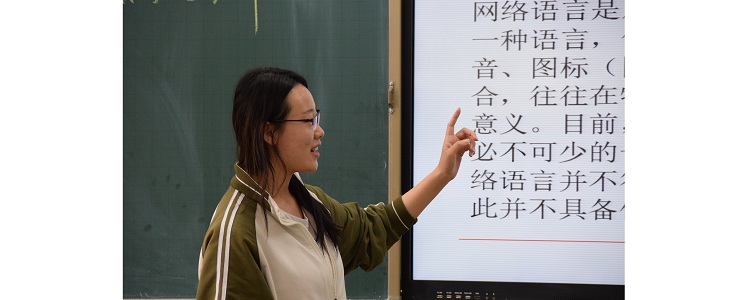 网络语言是
一种语言，
音、图标（
合，往往在
意义。目前，
必不可少的
络语言并不
此并不具备